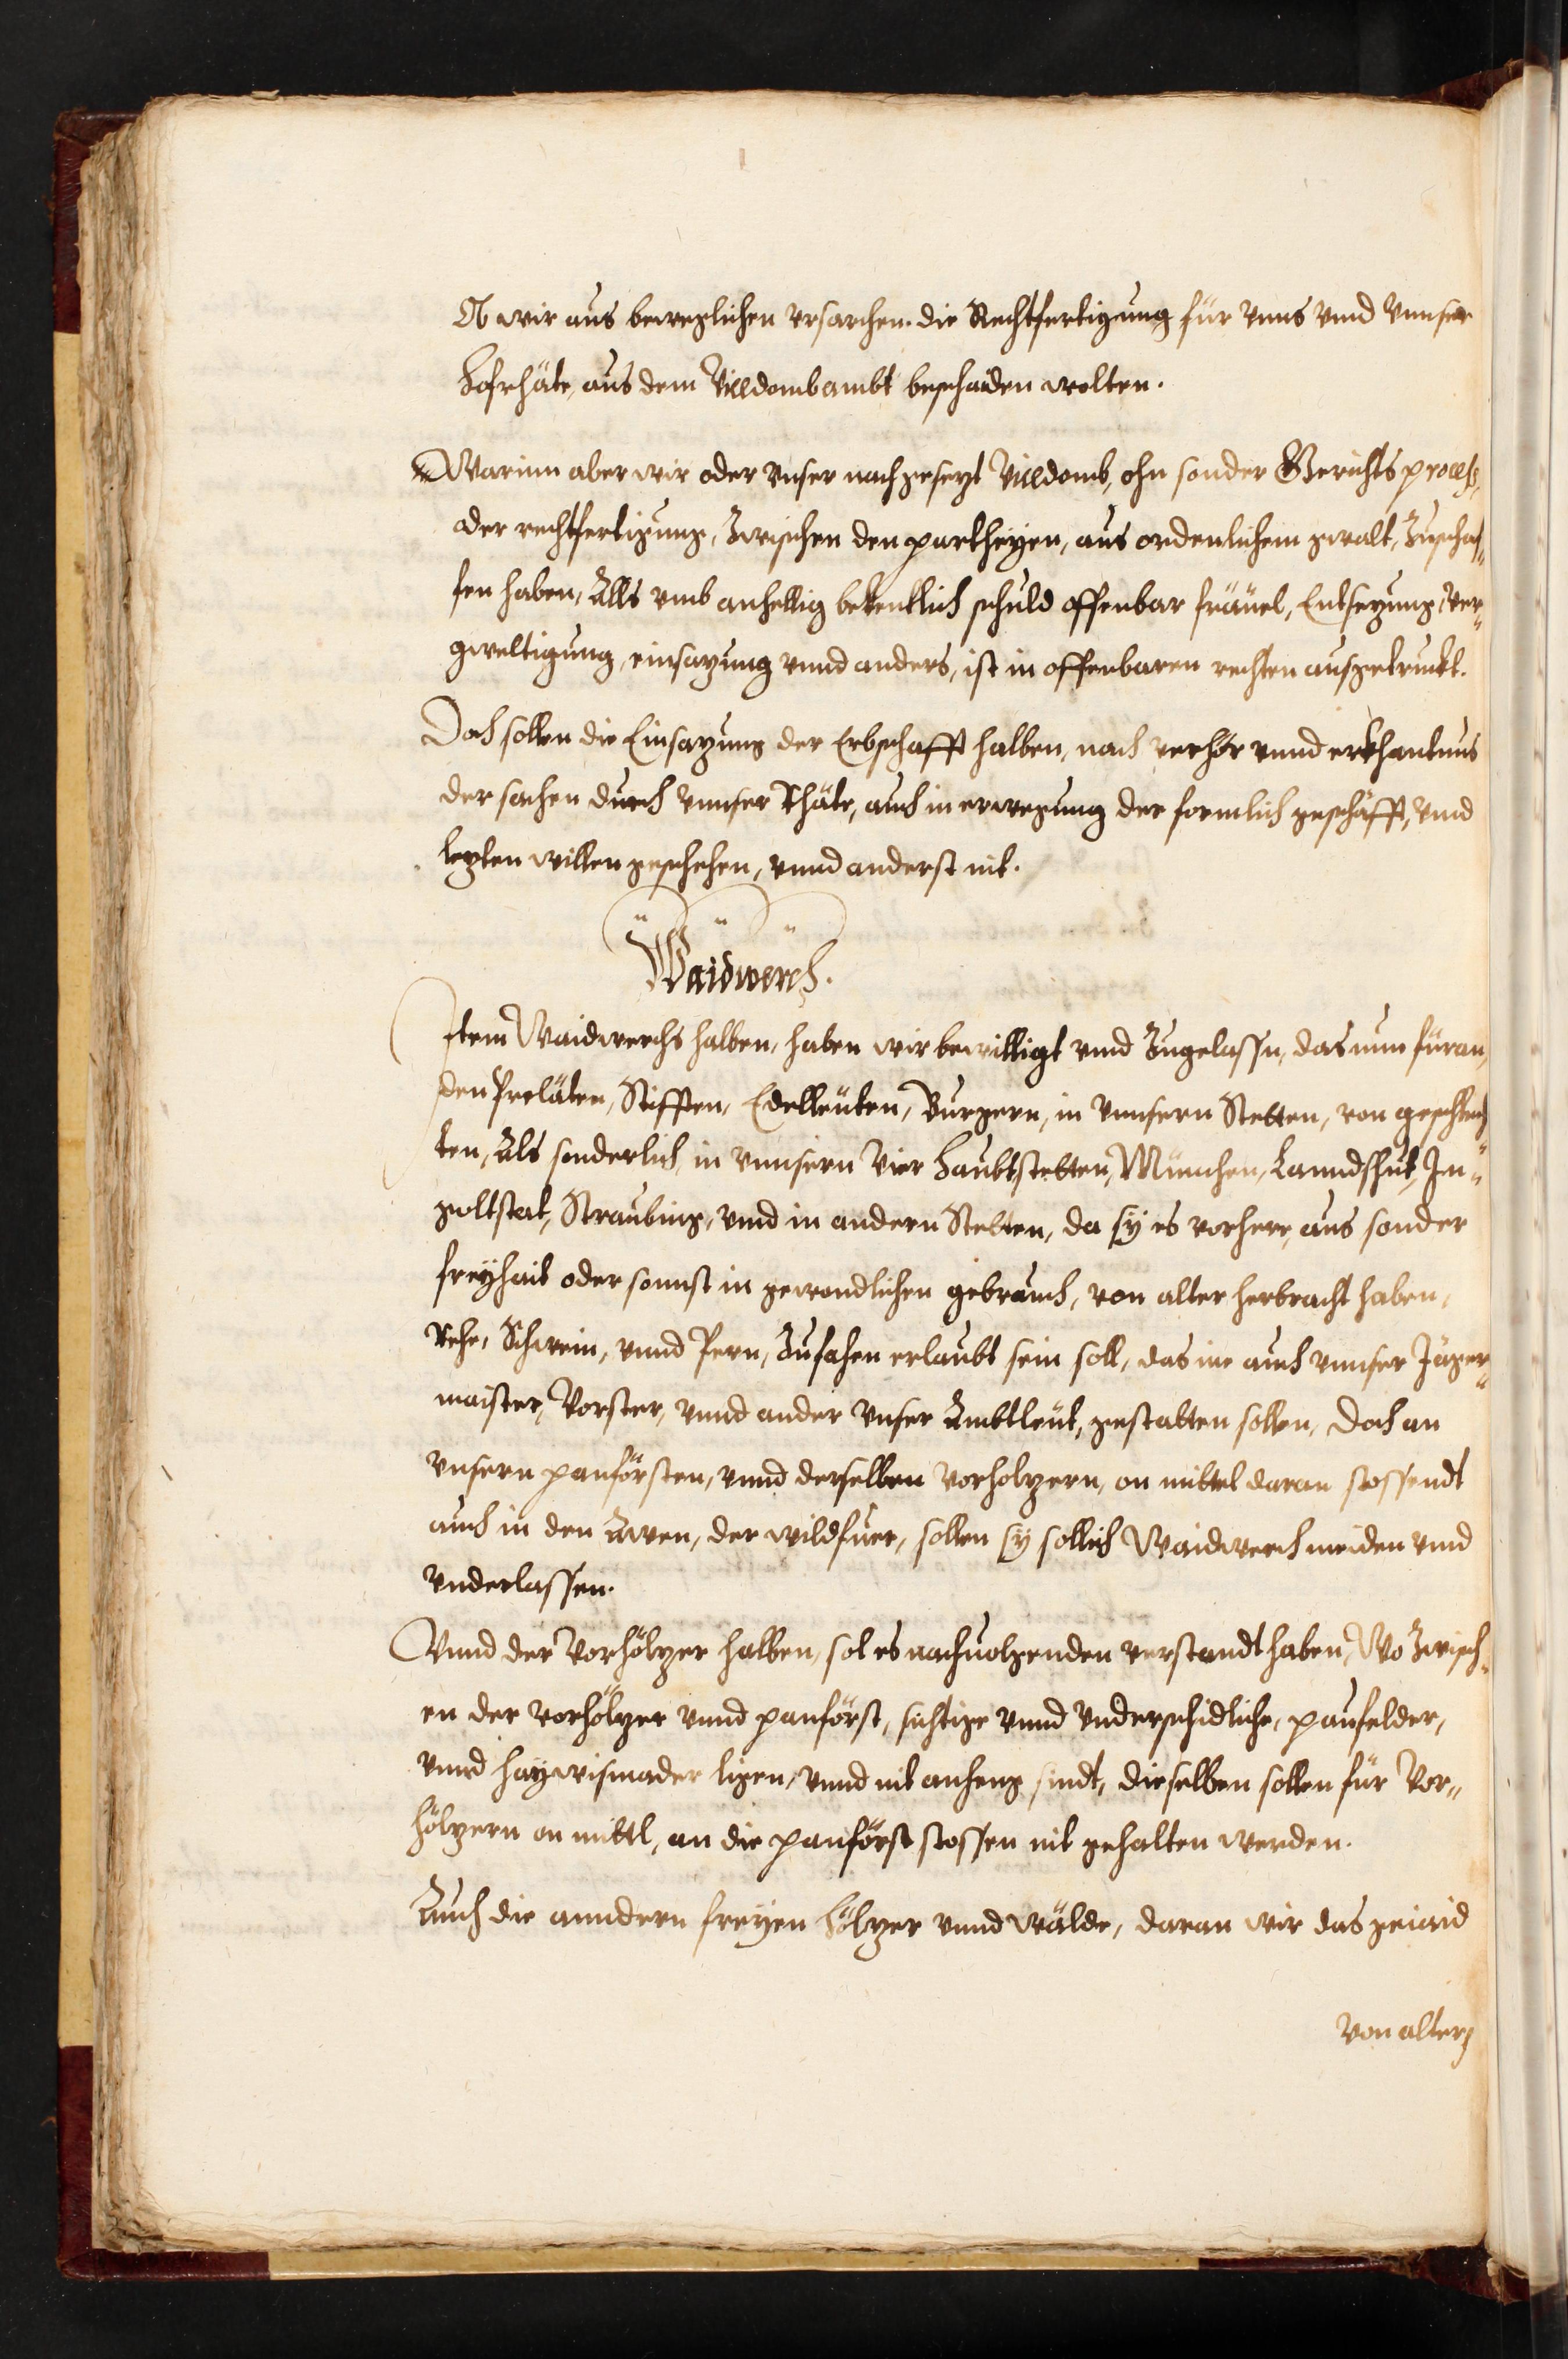 Ob wir aus beweglichen vrsachen. die Rechtfertigung für vnns vnnd vnnser
Hofrhäte, aus dem Vicedombambt beschaiden wolten.
Warinn aber wir oder vnser nachgesezt Vicedomb, ohn sonder Gerichts process,
oder rechtfertigung, Zwischen den partheyen, aus ordenlichem gwalt, Zuschaf„
fen haben, Alls vmb anhellig bekentlich schuld offenbar fräuel, Entsezung, Ver„
gweltigung, einsazung vnnd anders, ist in offenbaren rechten ausgetruckt.
Doch sollen die Einsazung der Erbschafft halben, nach verhör vnnd erkhantnus
der sachen durch vnnser Rhäte, auch in erwegung der formlich geschäfft, vnnd
lezten willen geschehen, vnnd anderst nit.
Waidwerch.
Item Waidwerchs halben, haben wir bewilligt vnnd Zugelassen, das nun füran,
den Prelaten, Stifften, Edelleuten, Burgern, in vnnsern Stetten, von geschlech„
ten, Als sonderlich in vnnsern Vier Haubtstetten, München, Lanndshut, In„
golstat, Straubing, vnnd in andern Stetten, da sy es vorher, aus sonder
freyhait oder sonnst in gewondlichen gebrauch, von alter herbracht haben,
Rehe, Schwein, vnnd Pern, Zufahen erlaubt sein soll, das ine auch vnnser Jäger„
maister, Vorster, vnnd ander vnser Ambtleut, gestatten sollen, Doch an
vnsern panförsten, vnnd derselben Vorholzern, on mittel daran stossendt
auch in den Awen, der wildfuer, sollen sy sollich Waidwerch meiden vnnd
vnderlassen.
Vnnd der Vorhölzer halben, sol es nachuolgenden verstandt haben, Wo Zwisch„
en der vorhölzer vnnd panförst, sichtige vnnd vnderschidliche, paufelder,
vnnd haywismader ligen, vnnd nit anheng sindt, dieselben sollen für Vor„
hölzern on mittl, an die panförst stossen nit gehalten werden.
Auch die anndern freyen hölzer vnnd wälde, daran wir das geiaid
von alter,